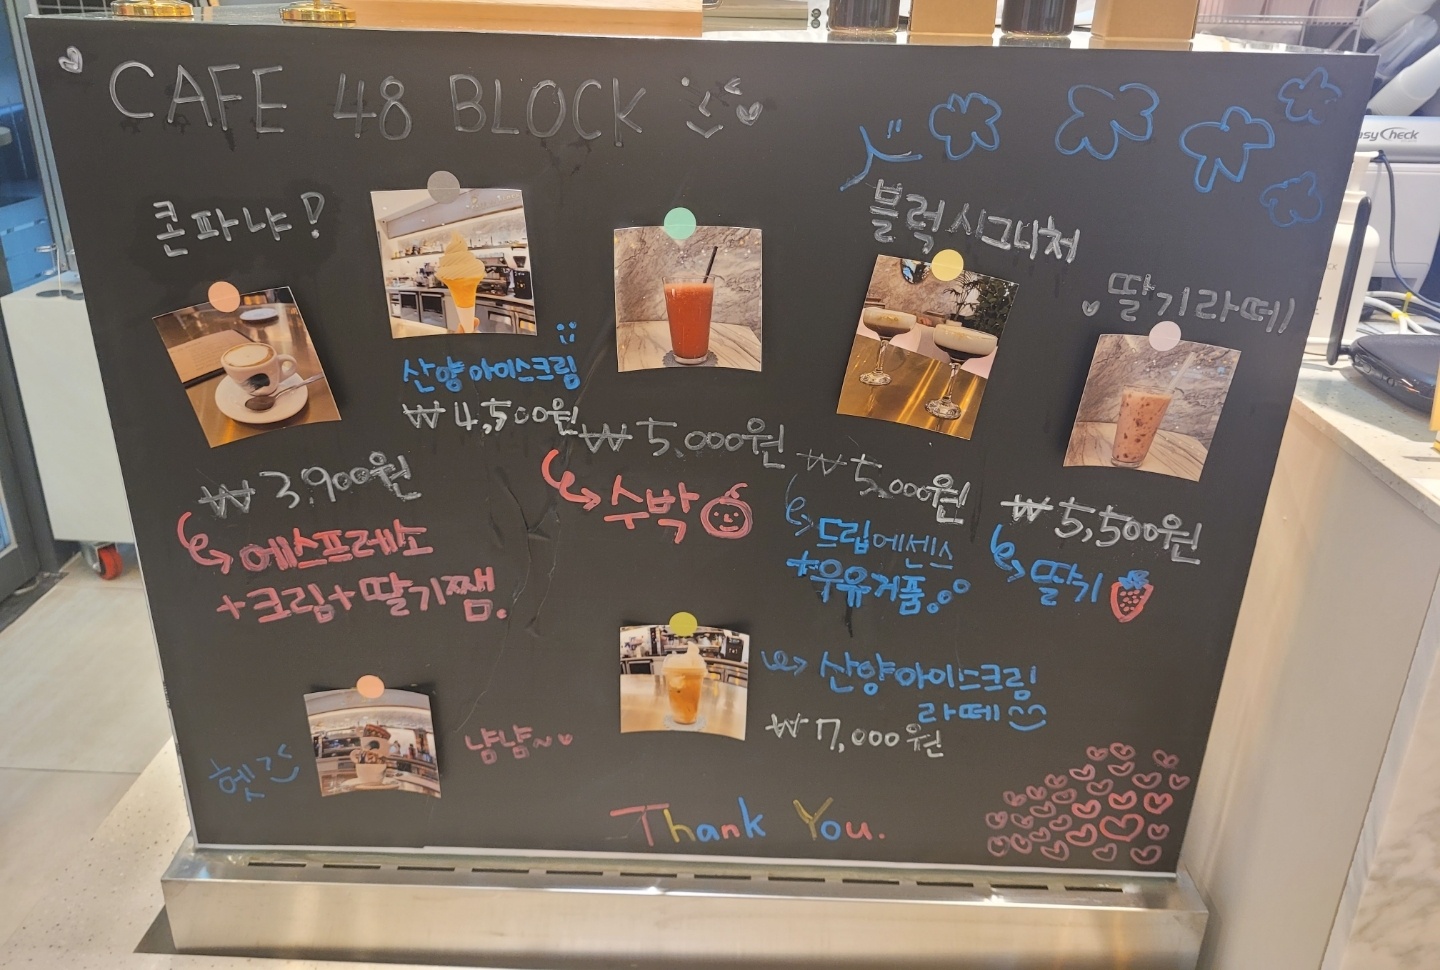 CAFE 48 BLOCK
콘파냐!
블럭시그니처
딸기라떼!
산양아이스크림
₩4,500원
₩5,000원
수박
₩3,900원
에스프레소
+크림+딸기쨈.
₩5,000원
드립에센스
+우유거품
₩5,500원
딸기
산양아이스크림
라떼
₩7,000원
헷
냠냠~
Thank You.
asyCheck